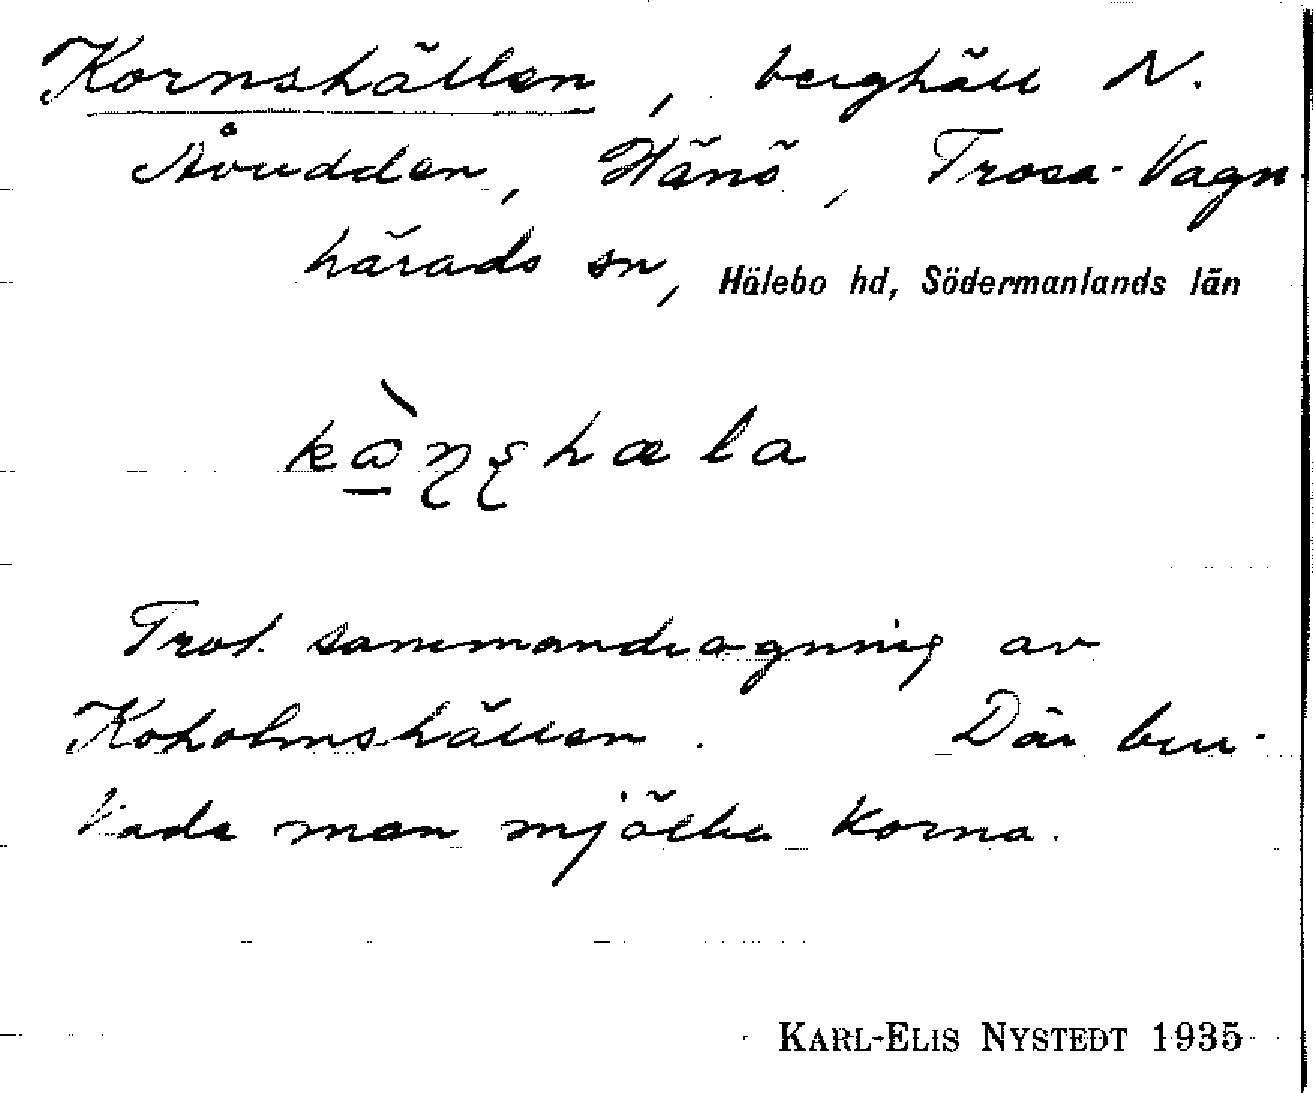 Kornshällen, berghäll N.
Åvudden, Hänö, Trosa-Vagn
härads sn, Hölebo hd, Södermanlands län
kɷ̀ɳʂhæla
Trol. sammandragning av
Koholmshällen. Där bru-
kade man mjölka korna.
KARL-ELIS NYSTEDT 1935